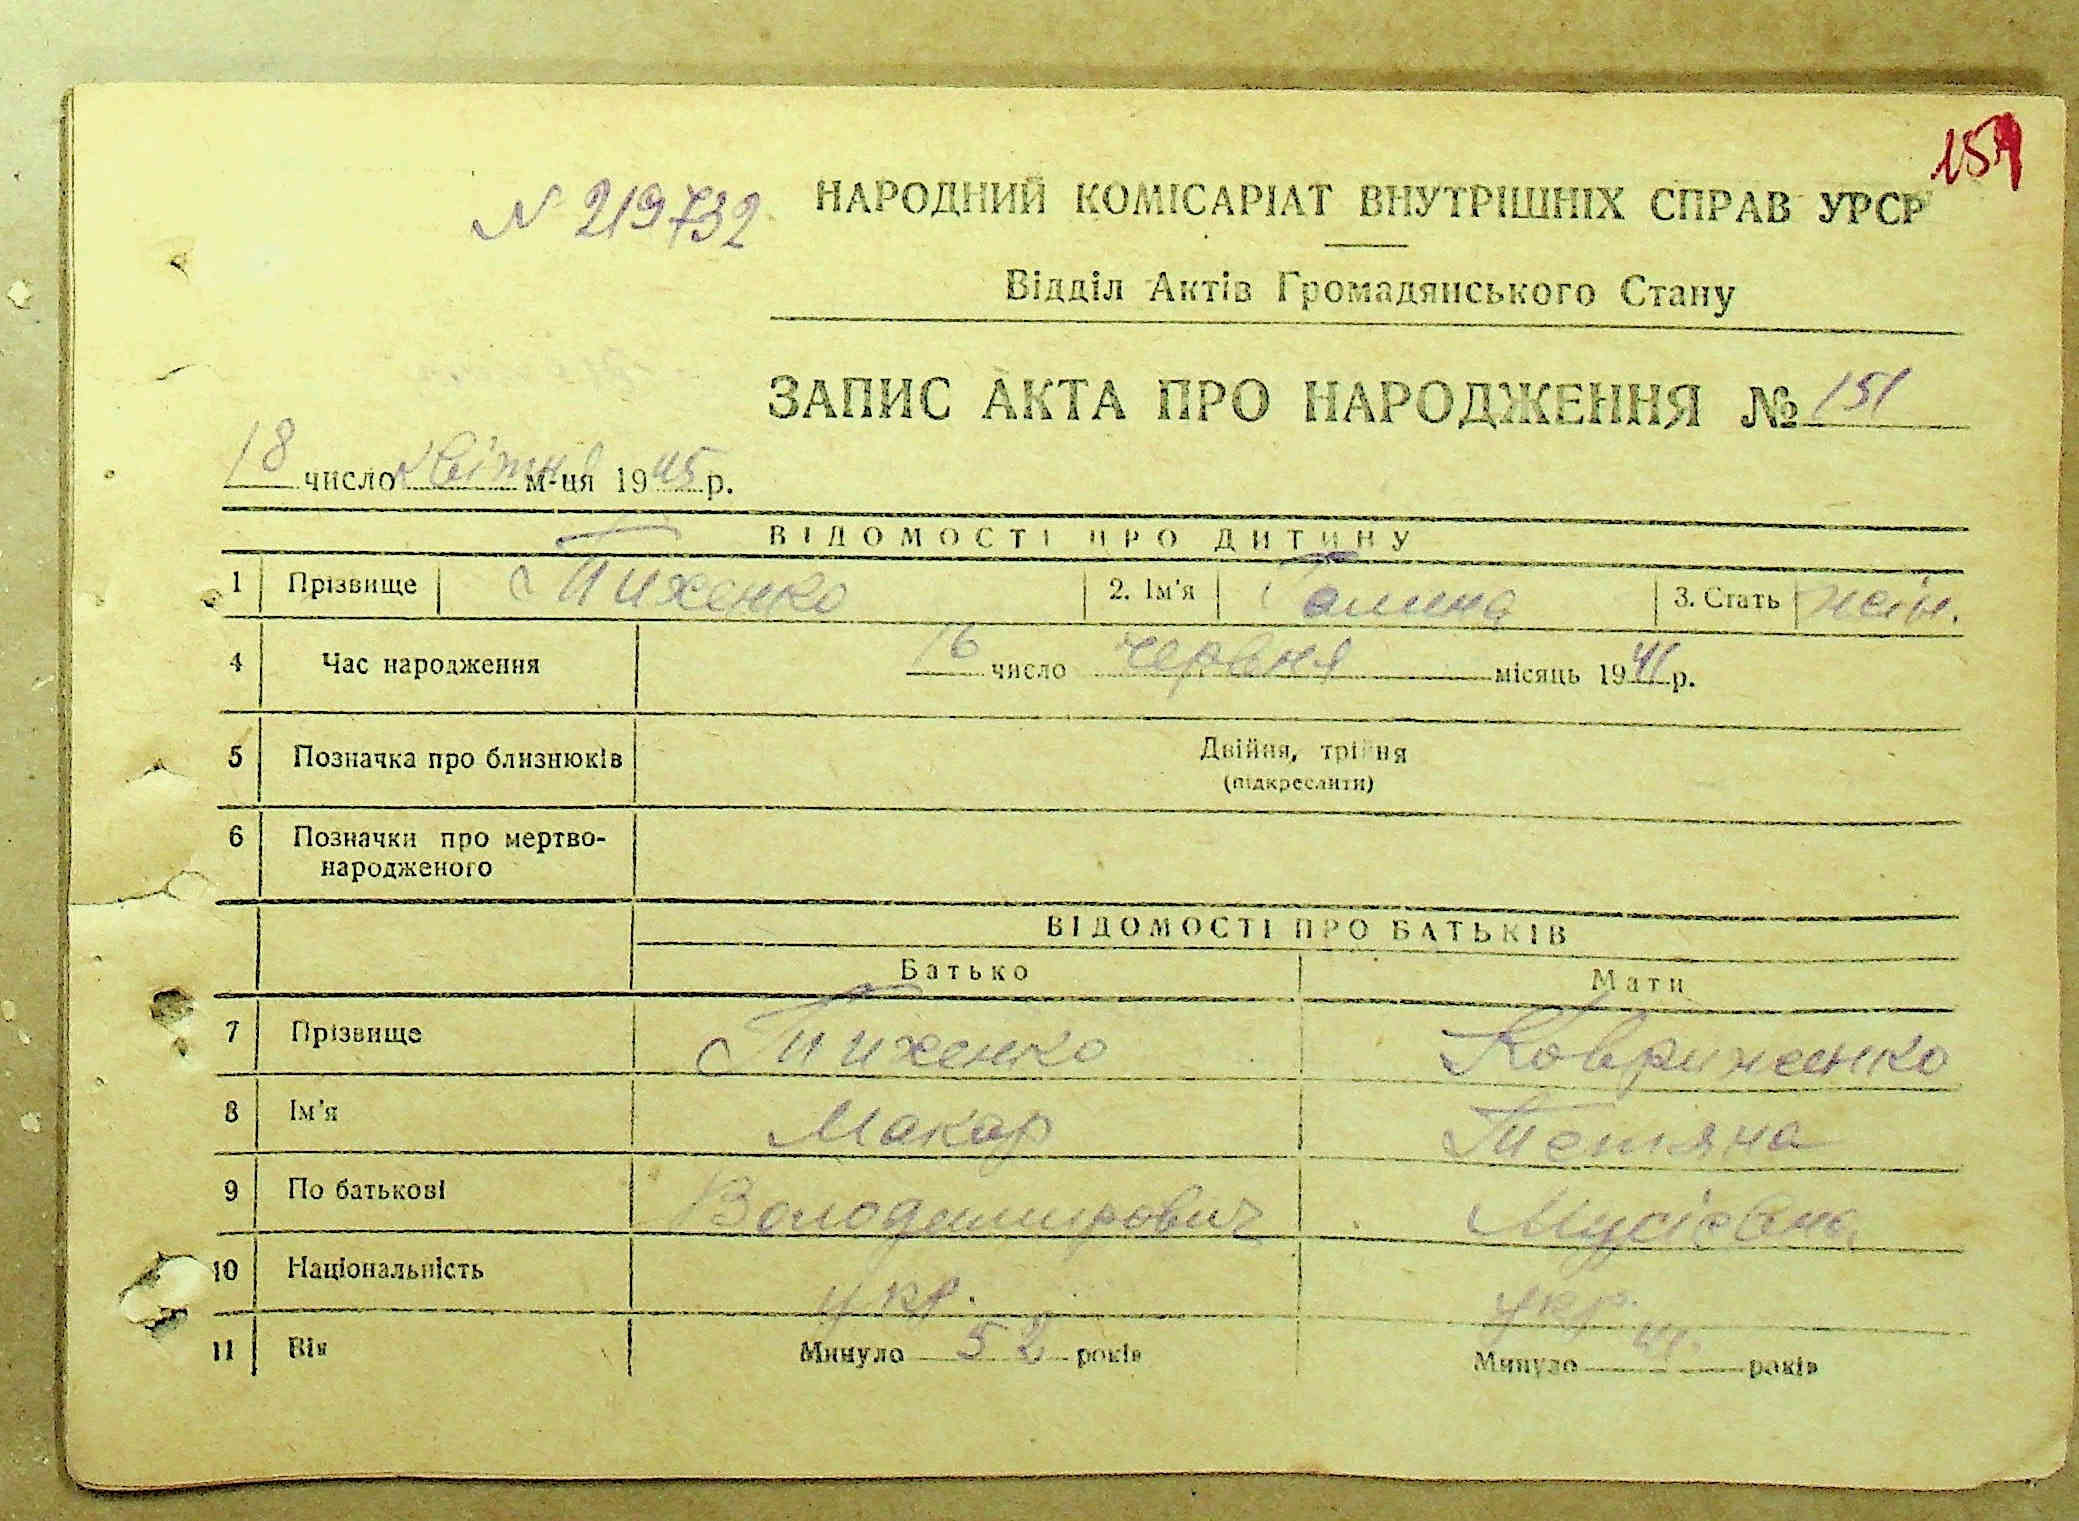 154
N 219732
НАРОДНИЙ КОМІСАРІАТ ВНУТРІШНІХ СПРАВ УРСР
Відділ Актів Громадянського Стану
ЗАПИС АКТА ПРО НАРОДЖЕННЯ № 151
18 число квітня м-ця 1945 р.
ВІДОМОСТІ ПРО ДИТИНУ
1 Прізвище Тиженко 2. Ім'я Галина 3. Стать жін.
4 Час народження 16 число червня місяць 1941 р.
5 Позначка про близнюків Двійня, трійня
(підкреслити)
6 Позначки про мертво-
народженого
ВІДОМОСТІ ПРО БАТЬКІВ
Батько Мати
7 Прізвище Тиженко Ковриженко
8 Ім'я Макар Тетяна
9 По батькові Володимирович Мусіевна
10 Національність укр. укр.
11 Вік Минуло 52 років Минуло 41 років